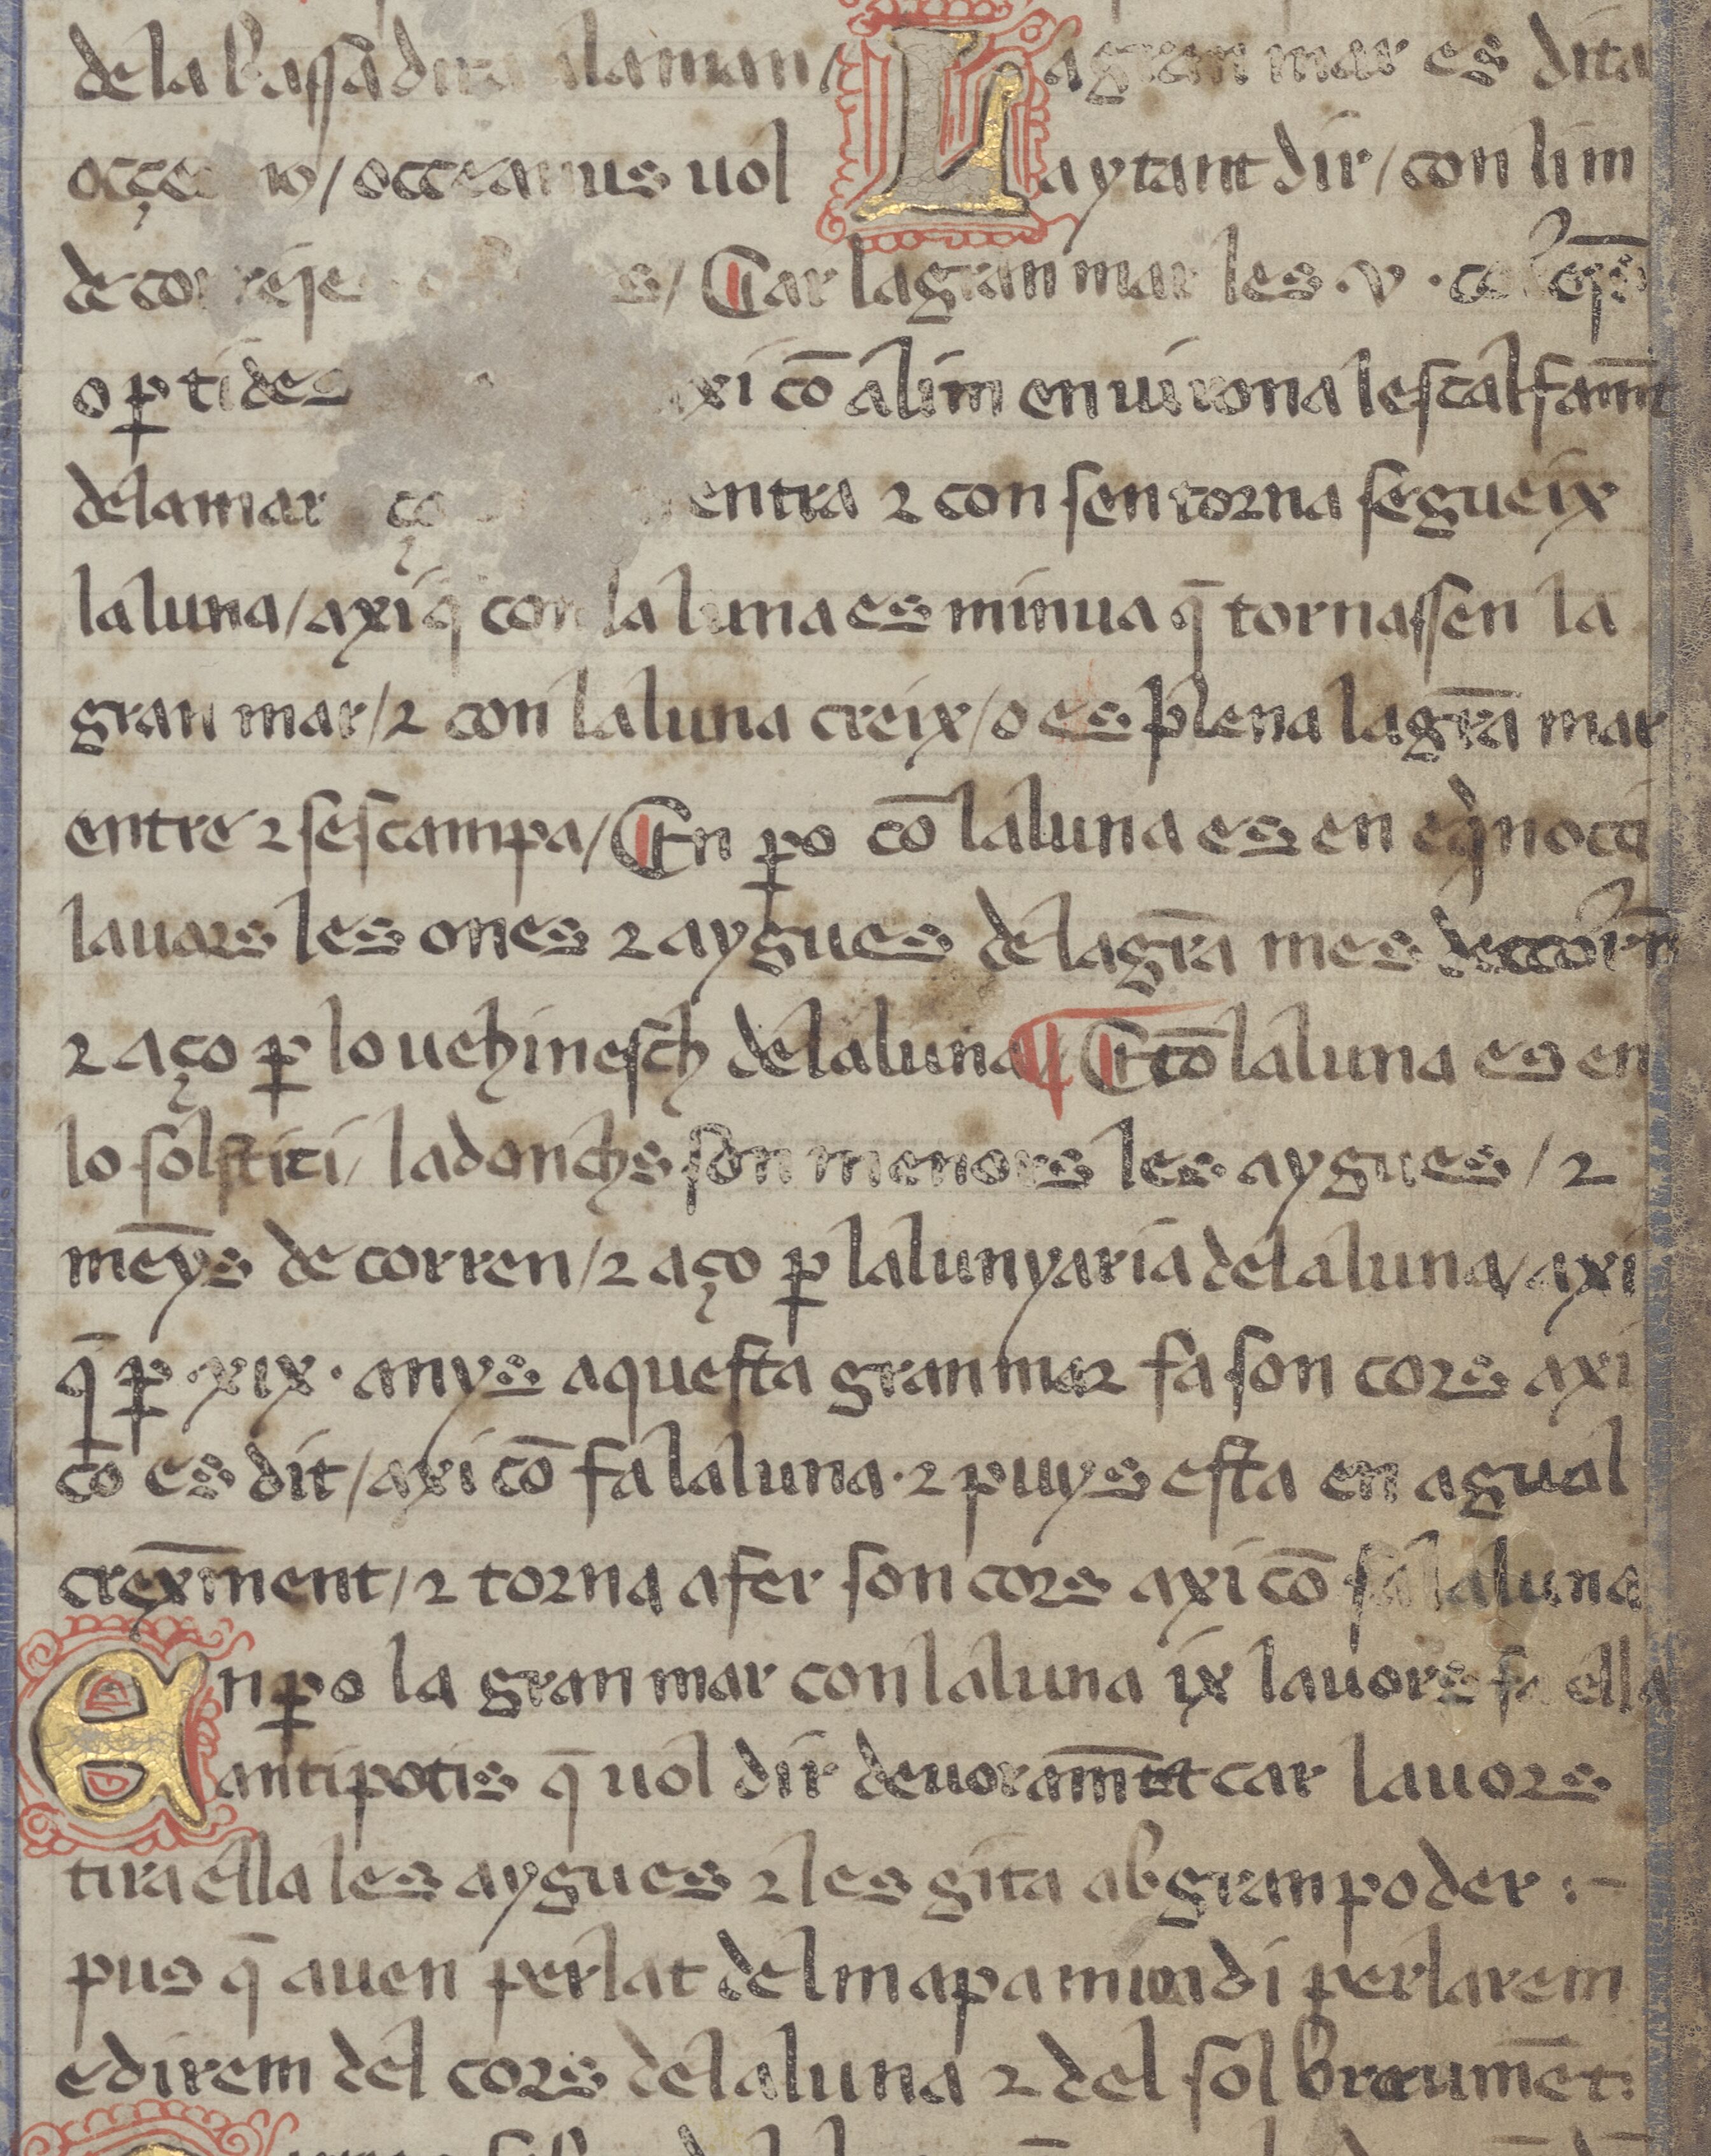 de la bassa dita ala man / La gran mar es dita
occeanus uol aytant dir / con lim
Car la gran mar les · v ·
o ꝑtides axi cō alim enuirona lescalfam̄t
dela mar entra ⁊ con sentorna segueix
la luna / axi q̄ con la luna es minua q̄ tornassen la
gran mar / ⁊ con la luna creix / o es plena la grā mar
entre ⁊ sescampa / En ꝑo cō la luna es en eq̇nocci
lauors les ones ⁊ aygues dela grā mes
⁊ aço ꝑ lo uehinesch dela luna / Et cō la luna es en
lo solstici / ladonchs son menors les aygues / ⁊
mēys de corren / ⁊ aço ꝑ lalunyaria dela luna / axi
q̄ ꝑ · xix · anys aquesta gran mar fa son cors axi
cō es dit / axi cō fa la luna · ⁊ puys esta en agual
crexm̄ent / ⁊ torna afer son cors axi cō fa la luna
En ꝑo la gran mar con la luna ix lauors fa ella
antipotis q̄ uol dir deuoram̄t car lauors
tira ella les aygues ⁊ les gita ab gran poder :-
pus q̄ auen perlat del mapa mundi perlarem
e direm del cors dela luna ⁊ del sol breumēt :